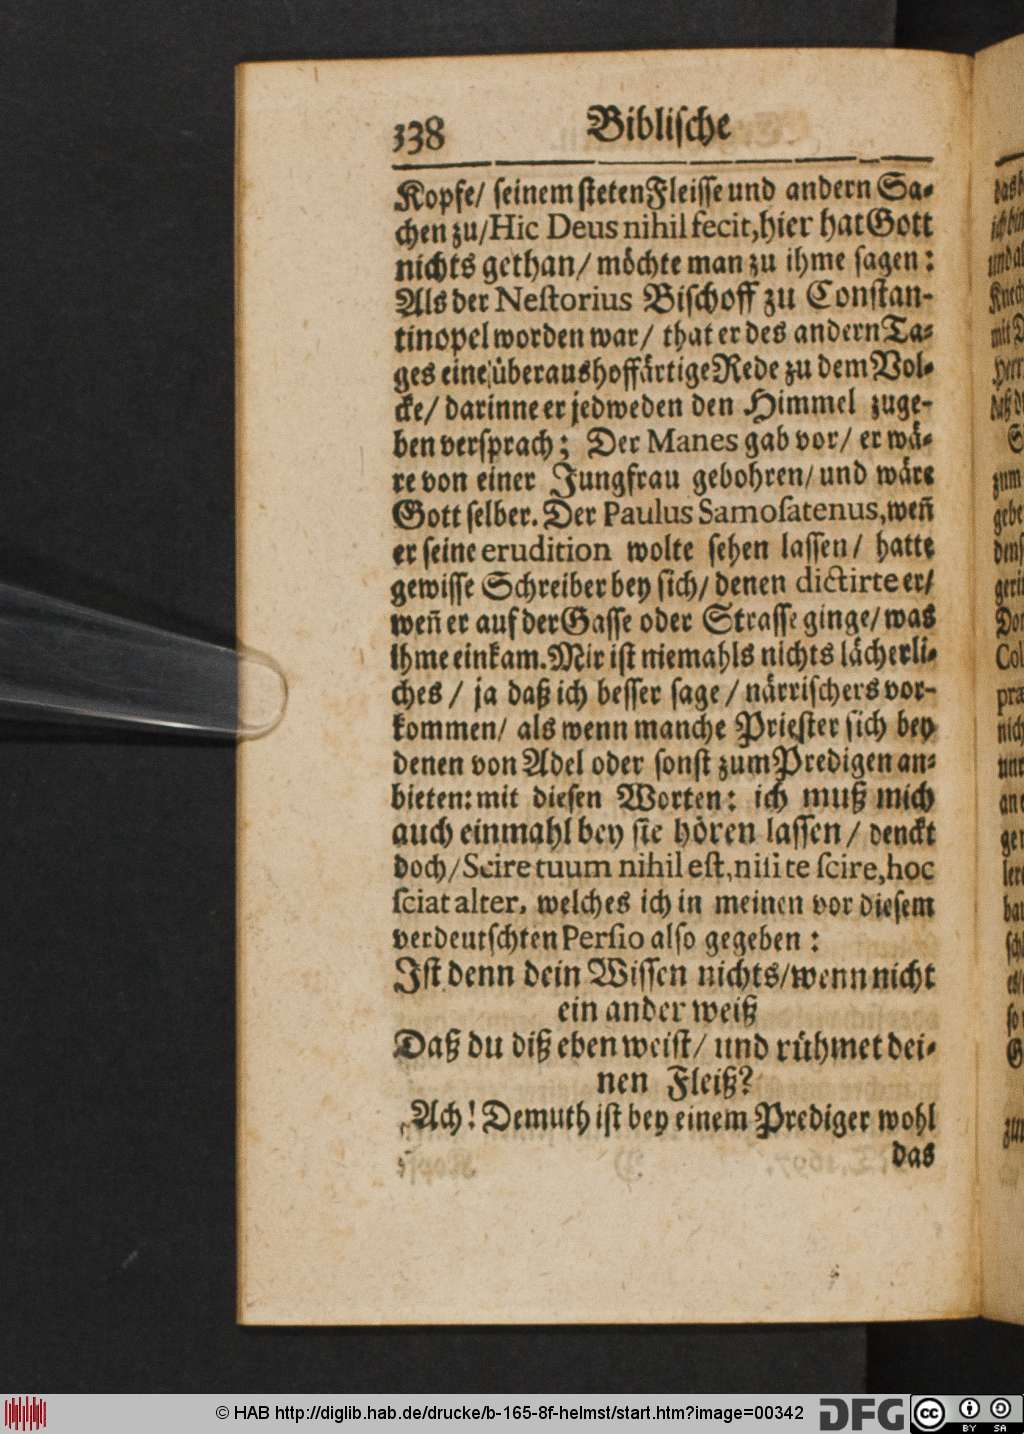 338 Biblische
Kopfe/ seinem steten Fleisse und andern Sa-
chen zu/ Hic Deus nihil fecit, hier hat Gott
nichts gethan/ möchte man zu ihme sagen:
Als der Nestorius Bischoff zu Constan-
tinopel worden war/ that er des andern Ta-
ges eine überaus hoffärtige Rede zu dem Vol-
cke/ darinne er jedweden den Himmel zuge-
ben versprach; Der Manes gab vor/ er wä-
re von einer Jungfrau gebohren/ und wäre
Gott selber. Der Paulus Samosatenus, weñ
er seine erudition wolte sehen lassen/ hatte
gewisse Schreiber bey sich/ denen dictirte er/
weñ er auf der Gasse oder Strasse ginge/ was
ihme einkam. Mir ist niemahls nichts lächerli-
ches / ja daß ich besser sage / närrischers vor-
kommen/ als wenn manche Priester sich bey
denen von Adel oder sonst zum Predigen an-
bieten: mit diesen Worten: ich muß mich
auch einmahl bey sie hören lassen / denckt
doch/ Scire tuum nihil est, nisi te scire, hoc
sciat alter, welches ich in meinen vor diesem
verdeutschten Persio also gegeben :
Ist denn dein Wissen nichts/ wenn nicht
ein ander weiß
Daß du diß eben weist/ und rühmet dei-
nen Fleiß?
Ach! Demuth ist bey einem Prediger wohl
das
© HAB http://diglib.hab.de/drucke/b-165-8f-helmst/start.htm?image=00342
DFG
cc
BY SA